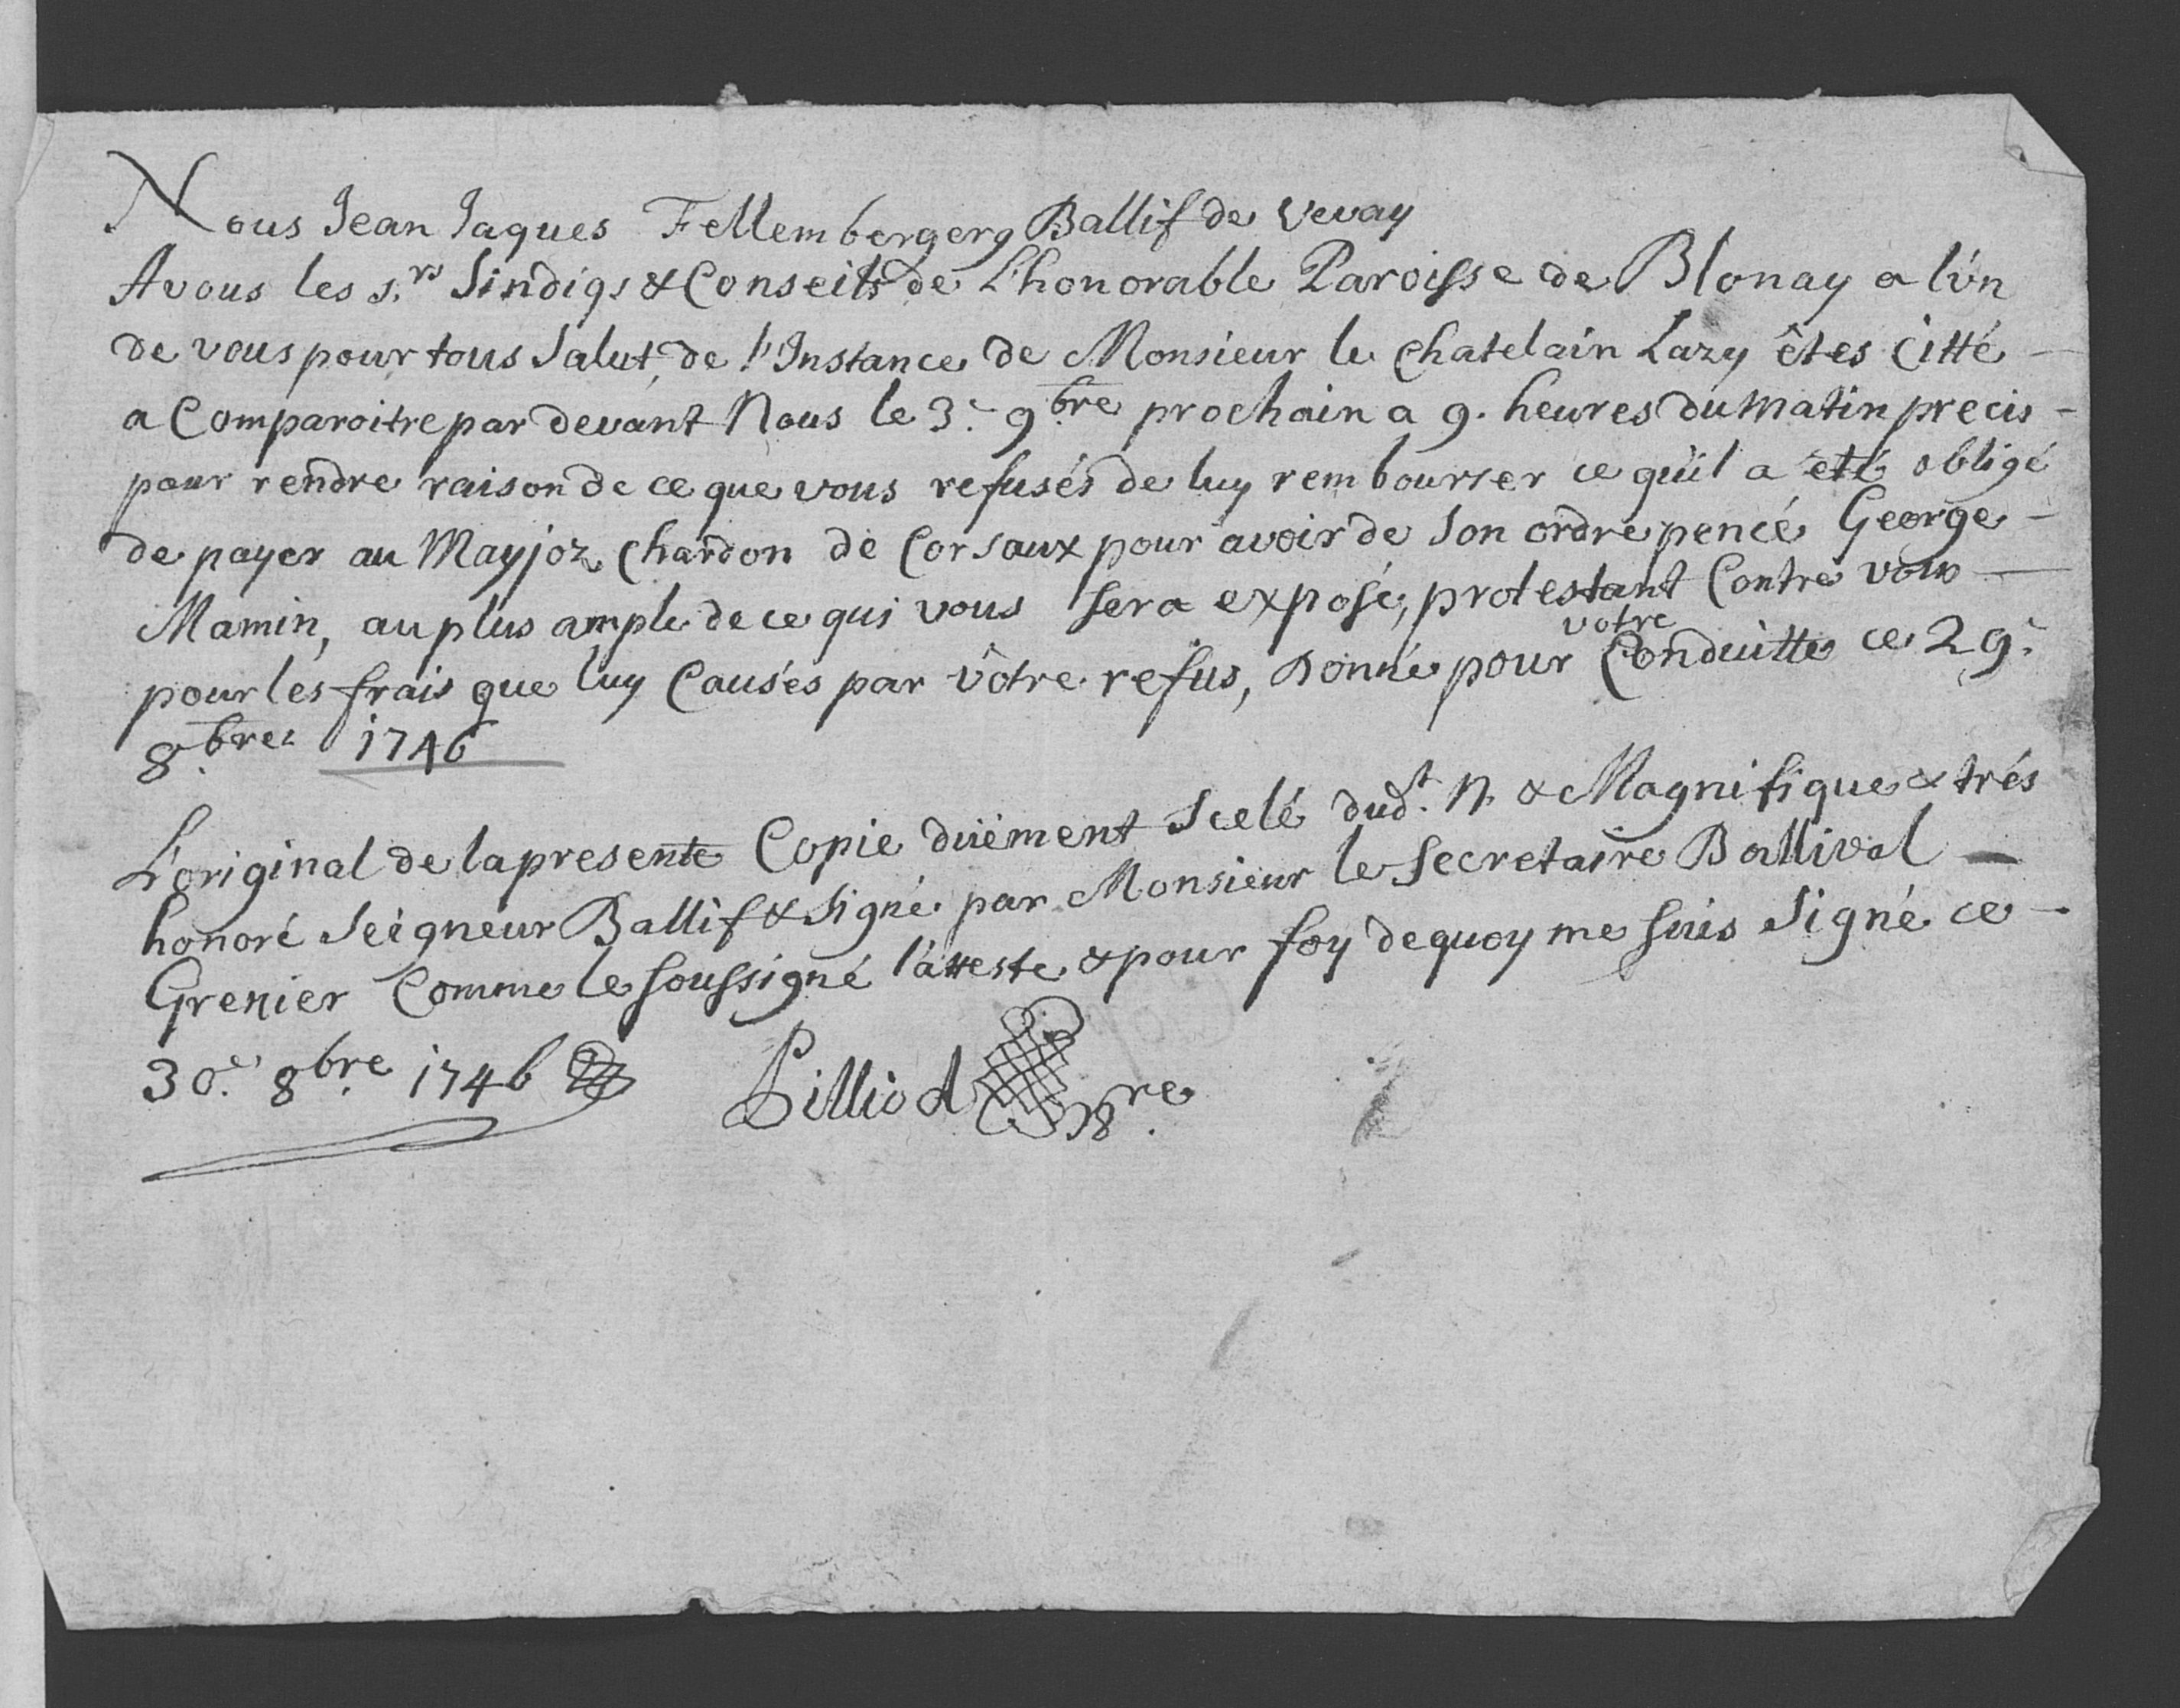 Nous Jean Jaques Fellembergerg Ballif de Vevay
A vous les s.rs Sindiqs & Conseils de L'honorable Paroisse de Blonay a l'ún
de vous pour tous Salut, de l'Instance de Monsieur le Chatelain Lazy êtes Citté
a Comparoitre par devant Nous le 3.e 9.bre prochain a 9. heures du matin precis
pour rendre raison de ce que vous refusés de luy rembourser ce qu'il a eté obligé
de payer au Mayjoz Chardon de Corsaux pour avoir de Son ordre pencé George
Mamin, au plus ample de ce qui vous Sera exposé, protestant Contre vous
pour les frais que luy Causés par vôtre refus, Donné pour votre Conduitte ce 29.e
8.bre 1746
L'original de la presente Copie düement Scelé dud.t N. & Magnifique & trés
honoré Seigneur Ballif & Signé par Monsieur le Secretaire Ballival
Grenier Comme le Soussigné l'atteste & pour foy dequoy me Suis Signé ce
30.e 8.bre 1746
Pilliod